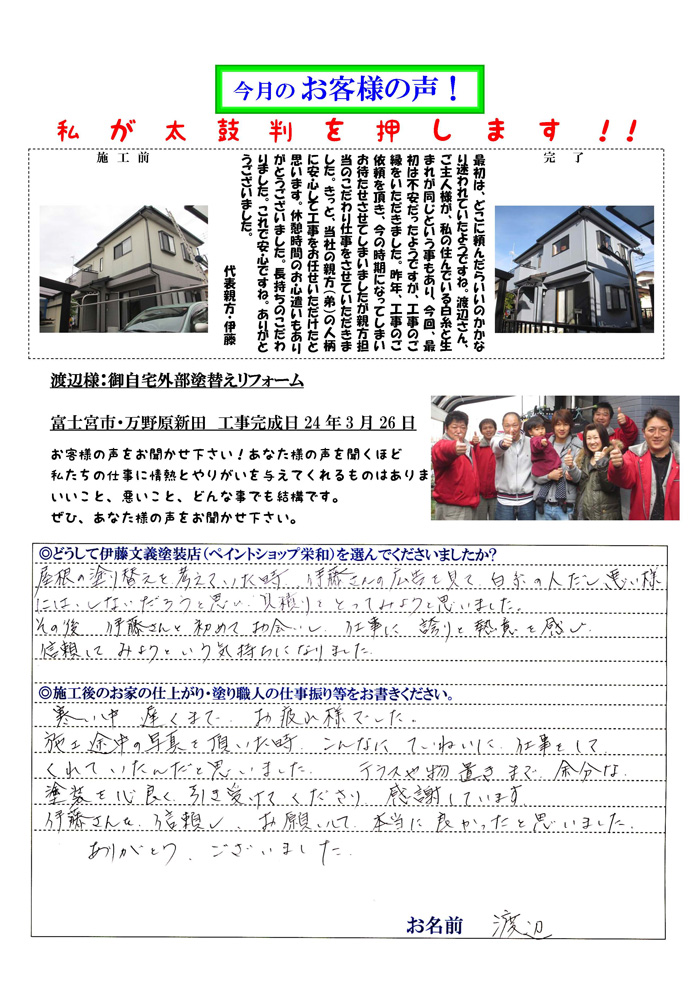 今月の お客様の声！
私が太鼓判を押します！！
施工前
完了
最初は、どこに頼んだらいいのかかな
り迷われていたようですね。渡辺さん、
ご主人様が、私の住んでいる白糸と生
まれが同じという事もあり、今回、最
初は不安だったようですが、工事のご
縁をいただきました。昨年、工事のご
依頼を頂き、今の時期になってしまい
お待たせさせてしまいましたが親方担
当のこだわり仕事をさせていただきま
した。きっと、当社の親方（弟）の人柄
に安心して工事をお任せいただけたと
思います。休憩時間のお心遣いもあり
がとうございました。長持ちのこだわ
りました。これで安心ですね。ありがと
うございました。
代表親方・伊藤
渡辺様：御自宅外部塗替えリフォーム
富士宮市・万野原新田　工事完成日24年3月26日
お客様の声をお聞かせ下さい！あなた様の声を聞くほど
私たちの仕事に情熱とやりがいを与えてくれるものはありま
いいこと、悪いこと、どんな事でも結構です。
ぜひ、あなた様の声をお聞かせ下さい。
◎どうして伊藤文義塗装店（ペイントショップ栄和）を選んでくださいましたか？
屋根の塗り替えを考えていた時 伊藤さんの広告を見て、白糸の人だし悪い様
にはしないだろうと思い 見積りをとってみようと思いました。
その後 伊藤さんと初めてお会いし 仕事に誇りと熱意を感じ
信頼してみようという気持ちになりました。
◎施工後のお家の仕上がり・塗り職人の仕事振り等をお書きください。
寒い中 遅くまで お疲れ様でした。
施工途中の写真を頂いた時 こんなにていねいに仕事をして
くれていたんだと思いました。 テラスや物置きまで 余分な
塗装を心良く引き受けてくださり 感謝しています
伊藤さんを信頼し、お願いして本当に良かったと思いました。
ありがとう、ございました。
お名前 渡辺